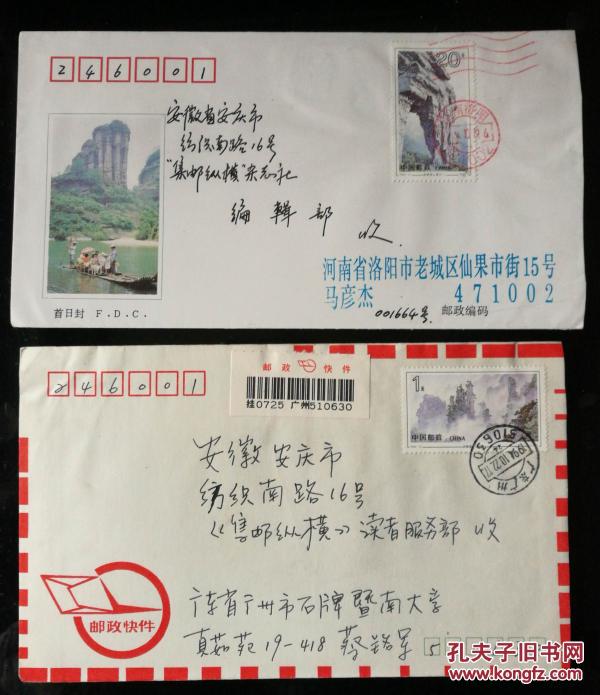 246001
20分
中国邮政 CHINA
安徽省安庆市
纺织南路16号
“集邮纵横”杂志社
编辑部
收
河南省洛阳市老城区仙果市街15号
马彦杰 471002
001664号 邮政编码
首日封 F.D.C.
246001
邮政 快件
挂0725 广州510630
1元
中国邮政 CHINA
510630
1994.10.12.17
广东广州
安徽安庆市
纺织南路16号
《集邮纵横》读者服务部 收
广东省广州市石牌暨南大学
真茹苑19-418 蔡
邮政快件
孔夫子旧书网